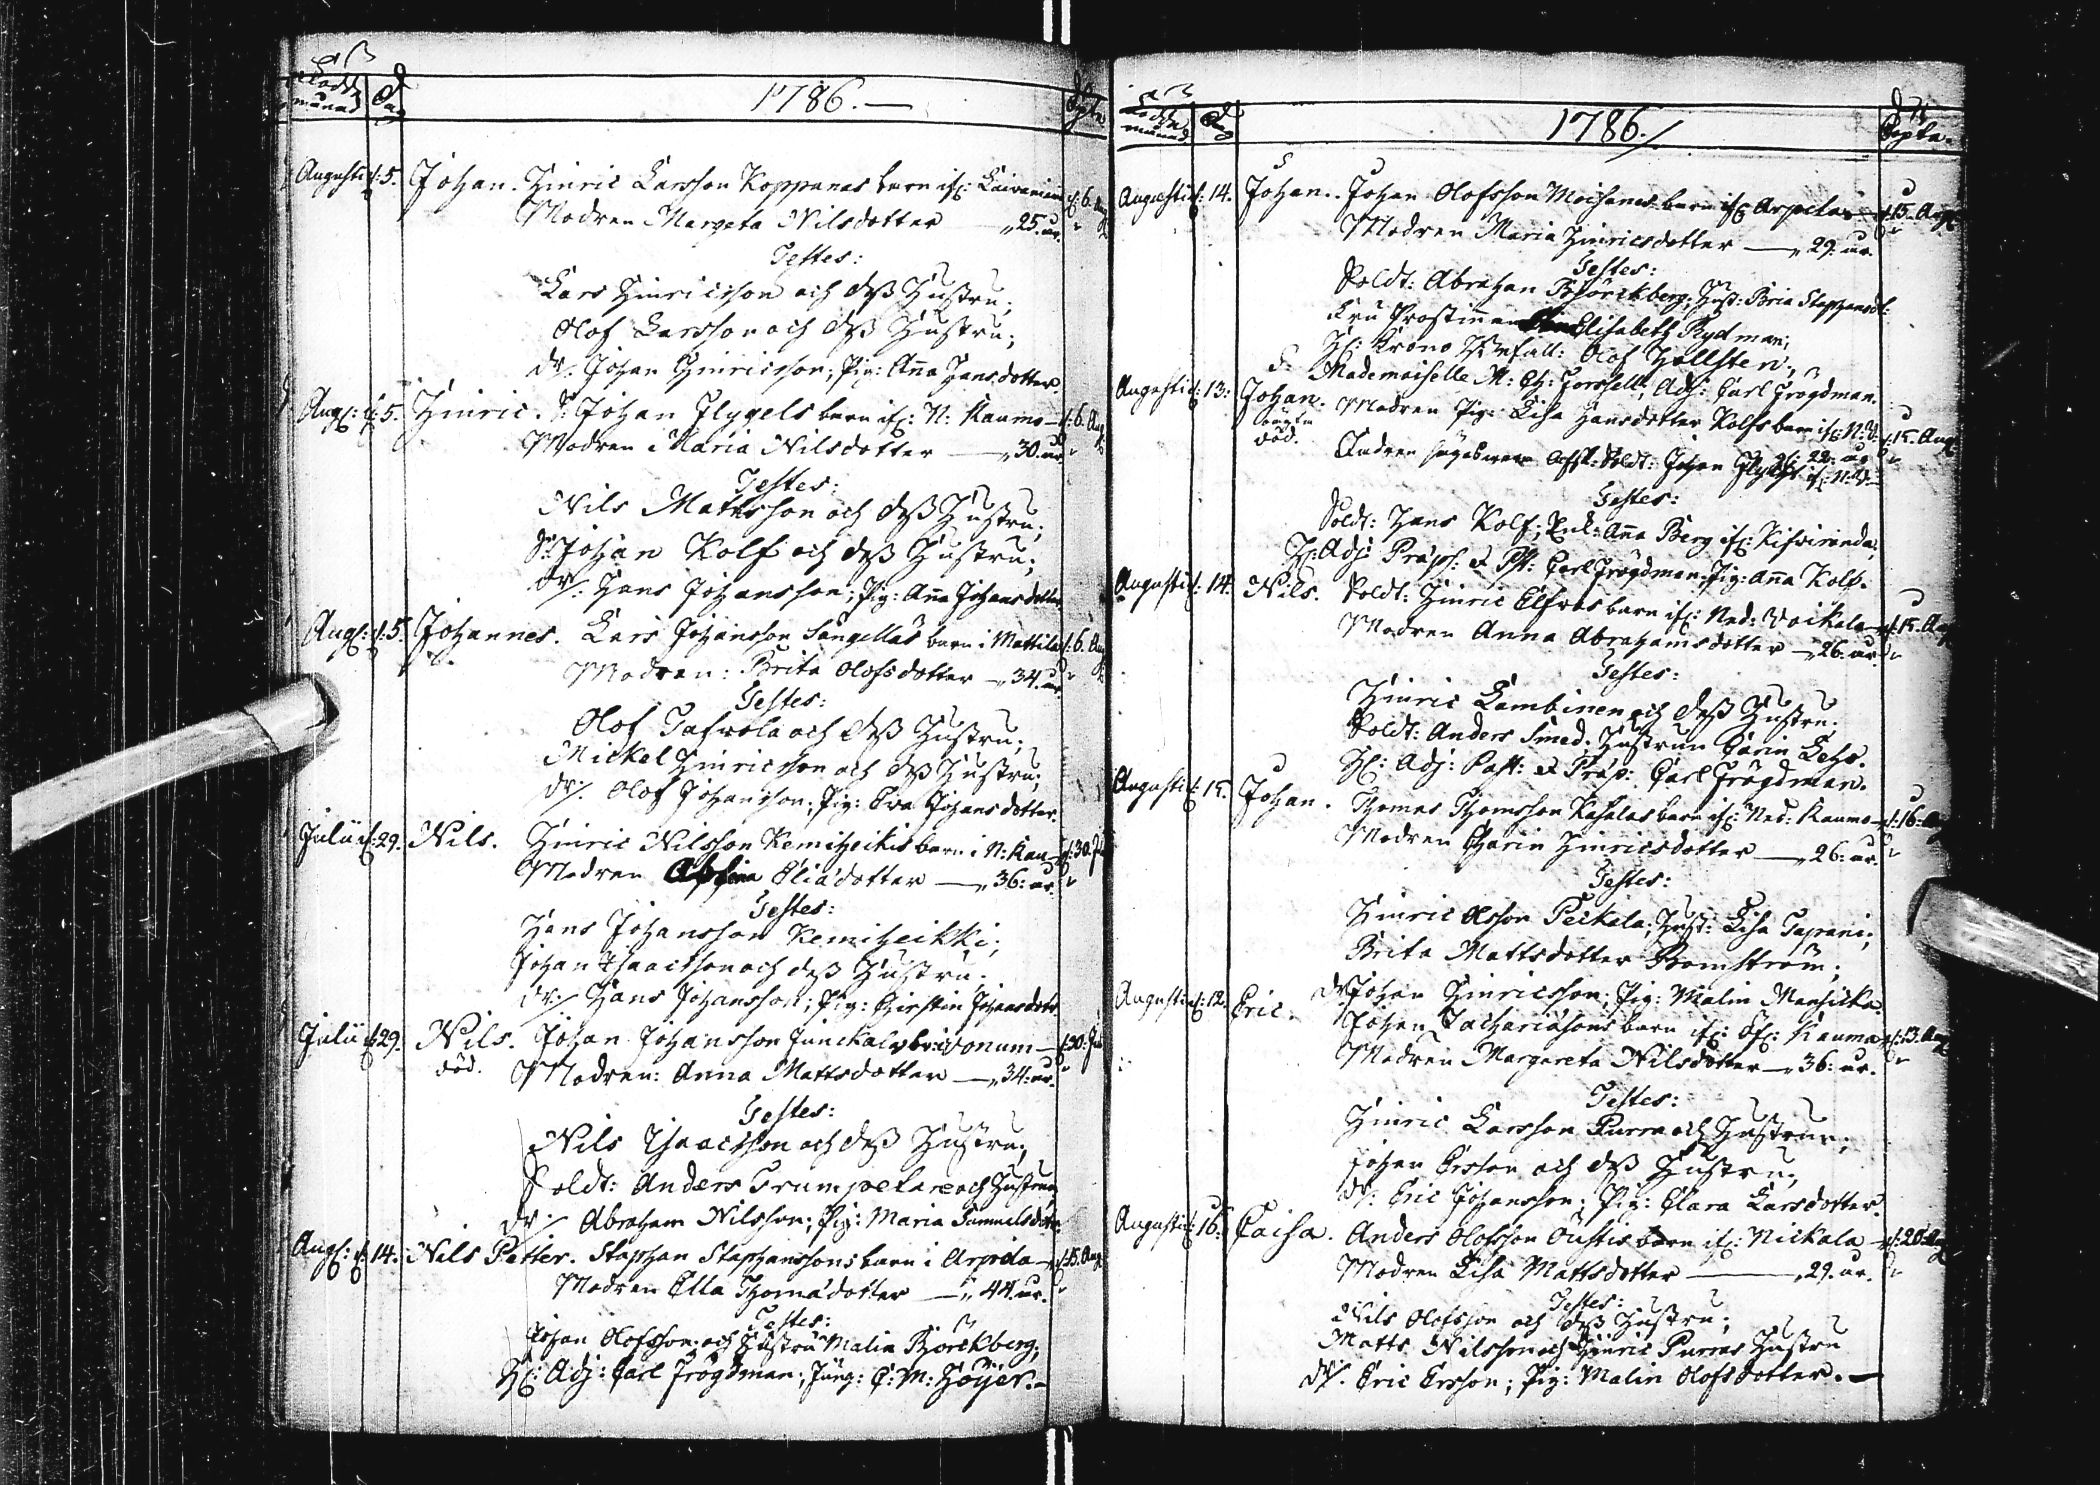 födde månad Dag 1786.— Döpte
Augusti d: 5. Johan. Hinric Larsson Koppanas barn if: d: 6. Aug
Modren Margeta Nilsdotter — 25. år.
Testes:
Lars Hinricsson och deß Hustru;
Olof Larsson och deß Hustru;
Dr. Johan Hinricsson; Pig: Aña Jansdotter.
Aug: d: 5. Hinric. Sd: Johan Flygels barn if: N: Kaumo — d: 6. Aug
Modren Maria Nilsdotter — 30. år.
Testes:
Nils Matsson och deß Hustru;
Sd: Johan Kolf och deß Hustru;
Dr. Hans Johansson; Pig: Aña Johansdotter
Aug: d: 5. Johannes. Lars Johansson Sangellas barn i Mattila d: 6. Aug
Modren: Brita Olofsdotter — 34. år.
Testes:
Olof Tafvola och deß Hustru;
Mickel Hinricsson och deß Hustru;
Dr. Olof Johansson; Pig: Eva Johansdotter.
Julii d: 29. Nils. Hinric Nilsson Kemiheikis barn i N: Kau — d: 30. Ju
Modren Eliædotter — 36: år.
Testes:
Hans Johansson Kemiheikki;
Johan Isaacsson och deß Hustru;
Dr: Hans Johansson; Pig: Chirstin Johansdotr
Julii d: 29. Nils. Johan Johansson Junckala — d: 30. Jul
död. Modren: Anna Mattsdotter — 34: år.
Testes:
Nils Isaacsson och deß Hustru;
Soldt: Anders Trumpetare och Hustrun
Dr. Abraham Nilsson; Pig: Maria Samuelsdotr.
Aug: d: 14. Nils Petter. Staphan Staphanssons barn i Arpela — d: 15. Aug
Modren Ella Thomædotter — 44. år.
Testes:
Johan Olofsson och Hustru Malin Björckberg;
H: Adj: Carl Frögdman; Jung: C: M: Höijer.—
födde månad Dag 1786. Döpte.
Augusti d: 14. Johan. Johan Olofsson Moisanes barn if: Arpela — d: 15. Aug
Modren Maria Hinricsdotter — 29. år.
Testes:
Soldt: Abraham Björckberg; Hust: Bria Staphansd:
Fru Prostinnan Elisabeth Rydman;
H: Krono Befall: Olof Hellsten;
Mademoiselle M: Ch: Forssell; Adj: Carl Frögdman.
Augusti d: 13: Johan. Modren Pig: Lisa Hansdotter Kolfs barn if: N: V: d: 15. Aug
oägta död. 22. år
Fadren Soldt: Johan Flygel if: N: V:
Testes:
Soldt: Hans Kolf; Enk: Aña Berg if: Kifviranda;
H: Adj: Præp: & Past: Carl Frögdman; Pig: Aña Kolf.
Augusti d: 14. Nils. Soldt: Hinric Elfvas barn if: Ned: Voikala — d: 15. Aug
Modren Anna Abrahamsdotter — 26. år.
Testes:
Hinric Lambinen och deß Hustru;
Soldt: Anders Smed; Hustrun Carin Lehs.
H: Adj: Past: & Præp: Carl Frögdman.
Augusti d: 15. Johan. Thomas Thomsson Kasalas barn if: Ned: Kaumo — d: 16: Aug
Modren Charin Hinricsdotter — 26: år.
Testes:
Hinric Olsson Peckala; Hust: Lisa Tapani;
Brita Mattsdotter Bomström;
Dr. Johan Hinricsson; Pig: Malin Mansicka.
Augusti d: 12. Eric. Johan Zachariæsons barn if: Öf: Kauma d: 13. Aug
Modren Margareta Nilsdotter — 36: år.
Testes:
Hinric Larsson Purra och Hustrun;
Johan Ersson och deß Hustru;
Dr: Eric Johansson; Pig: Clara Larsdotter.
Augusti d: 16: Caisa. Anders Olofsson Oustis barn if: Nickala — d: 20. Aug
Modren Lisa Mattsdotter — 29. år.
Testes:
Nils Olofsson och deß Hustru;
Matts Nilsson och Hinric Purras Hustru
Dr. Eric Ersson; Pig: Malin Olofsdotter.—